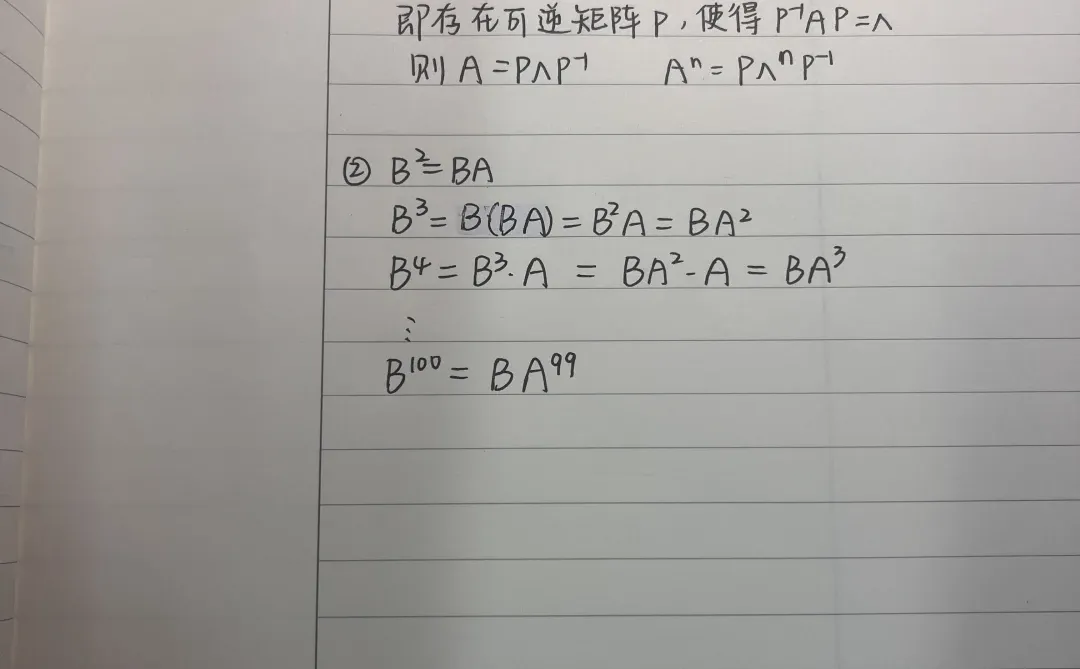 即存在可逆矩阵P,使得 P⁻¹AP=Λ
则 A=PΛP⁻¹ Aⁿ=PΛⁿP⁻¹
② B²=BA
B³=B(BA)=B²A=BA²
B⁴=B³·A=BA²-A=BA³
⋮
B¹⁰⁰=BA⁹⁹